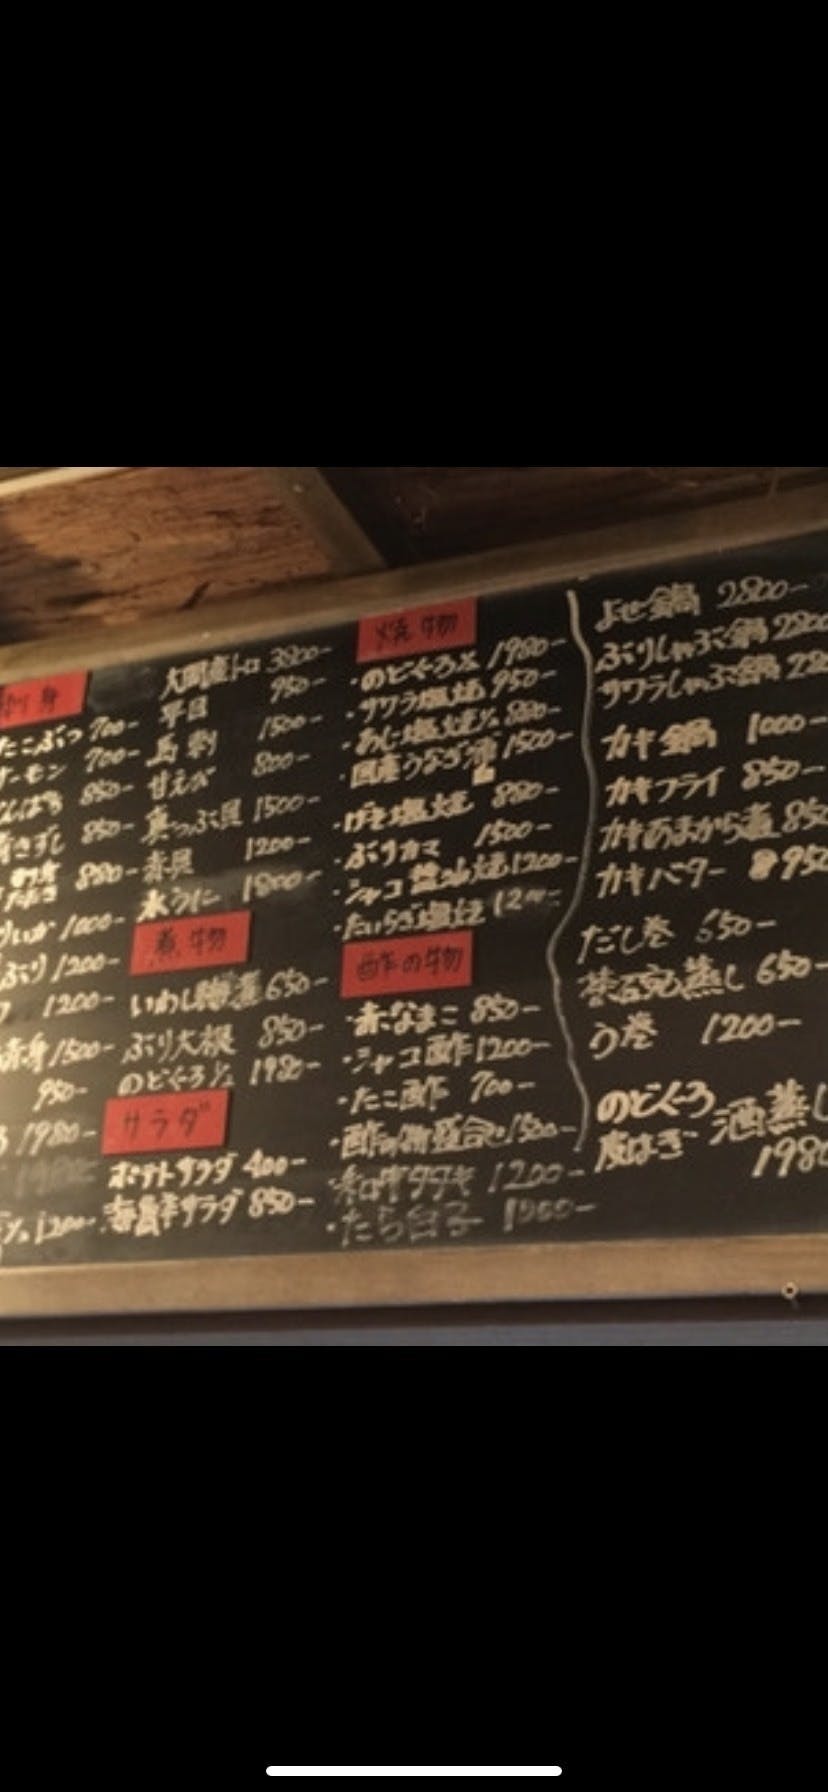 刺身
たこぶつ 700-
サーモン 700-
850-
850-
880-
1000-
ぶり 1200-
1200-
赤身 1500-
950-
1980-
1200-
大間産トロ 3800-
平目 950-
馬刺 1500-
甘えび 800-
真つぶ貝 1500-
赤貝 1200-
水うに 1800-
煮物
いわし梅煮 650-
ぶり大根 850-
のどぐろ1/2 1980-
サラダ
ポテトサラダ 400-
海鮮サラダ 850-
焼物
・のどぐろ½ 1980-
・サワラ塩焼 950-
・あじ塩焼½ 880-
・国産うなぎ蒲 1500-
・げそ塩焼 880-
・ぶりカマ 1500-
・シャコ醤油焼 1200-
・たいらぎ塩焼
酢の物
・赤なまこ 850-
・シャコ酢 1200-
・たこ酢 700-
・酢の物盛合 1500-
・和牛タタキ 1200-
・たら白子
よせ鍋 2800-
ぶりしゃぶ鍋 2800
サワラしゃぶ鍋
カキ鍋 1000-
カキフライ 850-
カキあまから煮 850
カキバター 950
だし巻 650-
茶碗蒸し 650-
う巻 1200-
のどぐろ
皮はぎ 酒蒸し
1980